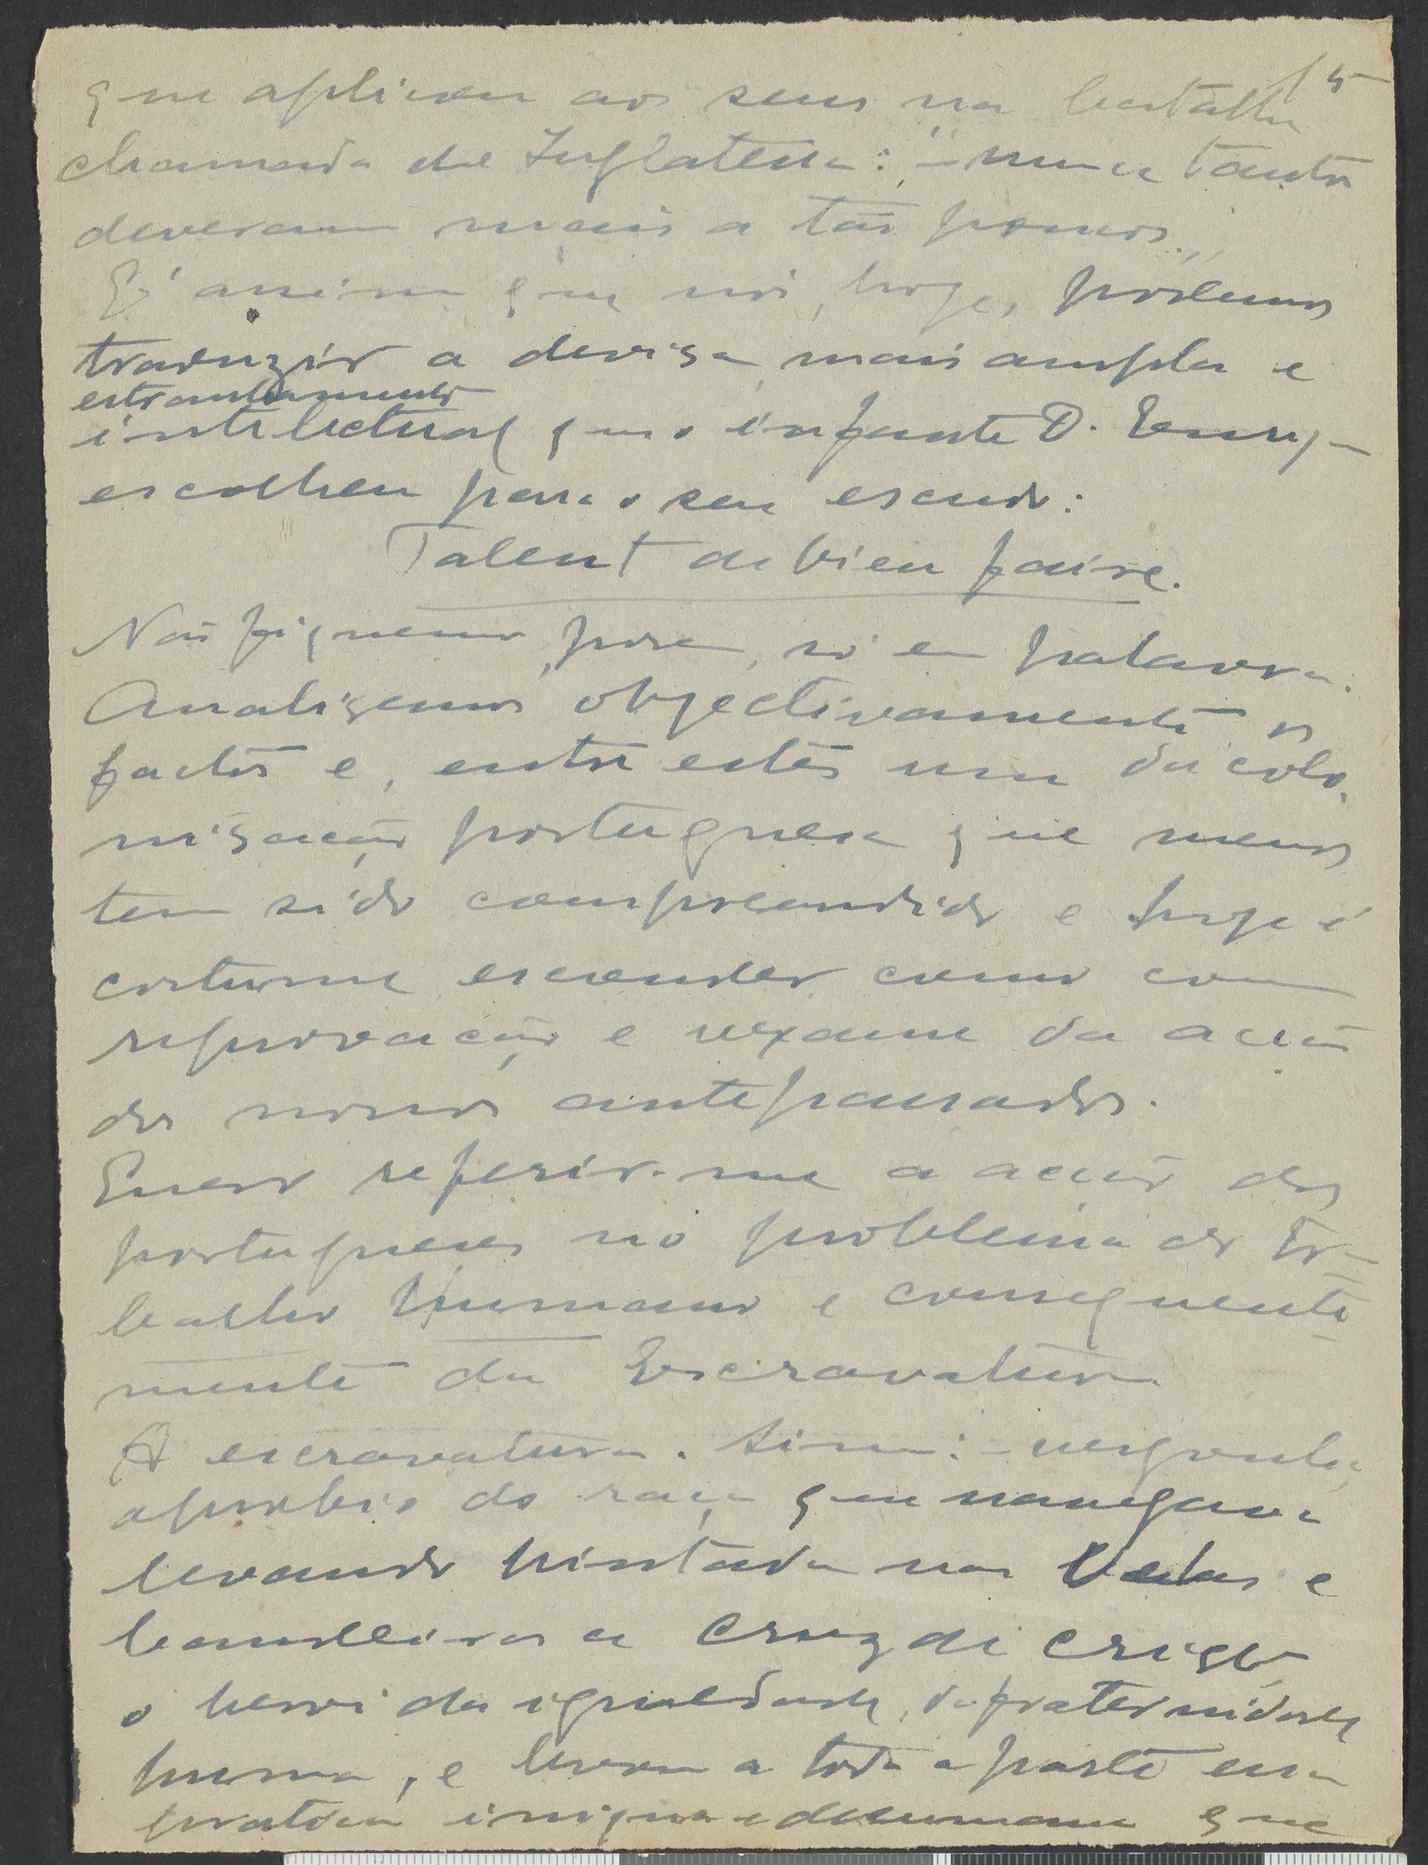 15
que aplicou aos seus na batalha
chamada de Inglaterra: "– nunca tantos
deveram mais a tão poucos."
É assim que nós, hoje, podemos
traduzir a devisa, mais ampla e
estranhamente
intelectual que o infante D. Henrique
escolheu para o seu escudo:
Talent de bien faire.
Não fiquemos, porem, só em palavras.
Analisemos objectivamente os
factos e, entre estes um da colo-
nisação portuguesa que menos
tem sido compreendido e hoje é
costume esconder como com
reprovação e vexame da acção
dos nossos antepassados.
Quero referir-me a acção dos
portugueses no problema do tra-
balho humano e consequente
mente da Escravatura
A escravatura. Sim: – vergonha,
oprobio da raça que navegava
levando pintada nas Velas e
bandeiras a Cruz de Cristo
o heroi da igualdade, da fraternidade
humana, e levou a toda a parte essa
pratica iniqua e deshumana que